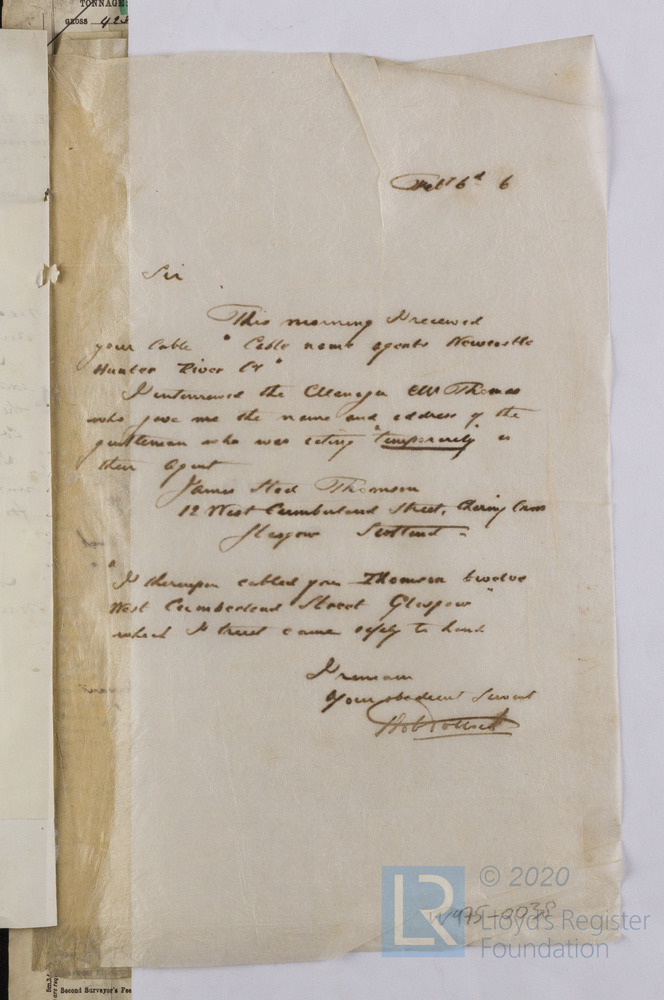 TONNAGE:
GROSS 428
Feby 6th 6
Sir
This morning I received
your Cable " Cable name agents Newcastle
Hunter River Co "
I interviewed the Manager Mr Thomas
who gave me the name and address of the
gentleman who was acting "temporarily" as
their Agent
James Thomson
12 West Cumberland Street, Charing Cross
Glasgow Scotland
"I thereupon cabled you Thomson twelve
West Cumberland Street Glasgow"
which I trust came safely to hand
I remain
Your obedient Servant
W475-0038
© 2020
LR
Lloyd's Register
Foundation
Second Surveyor's Fee